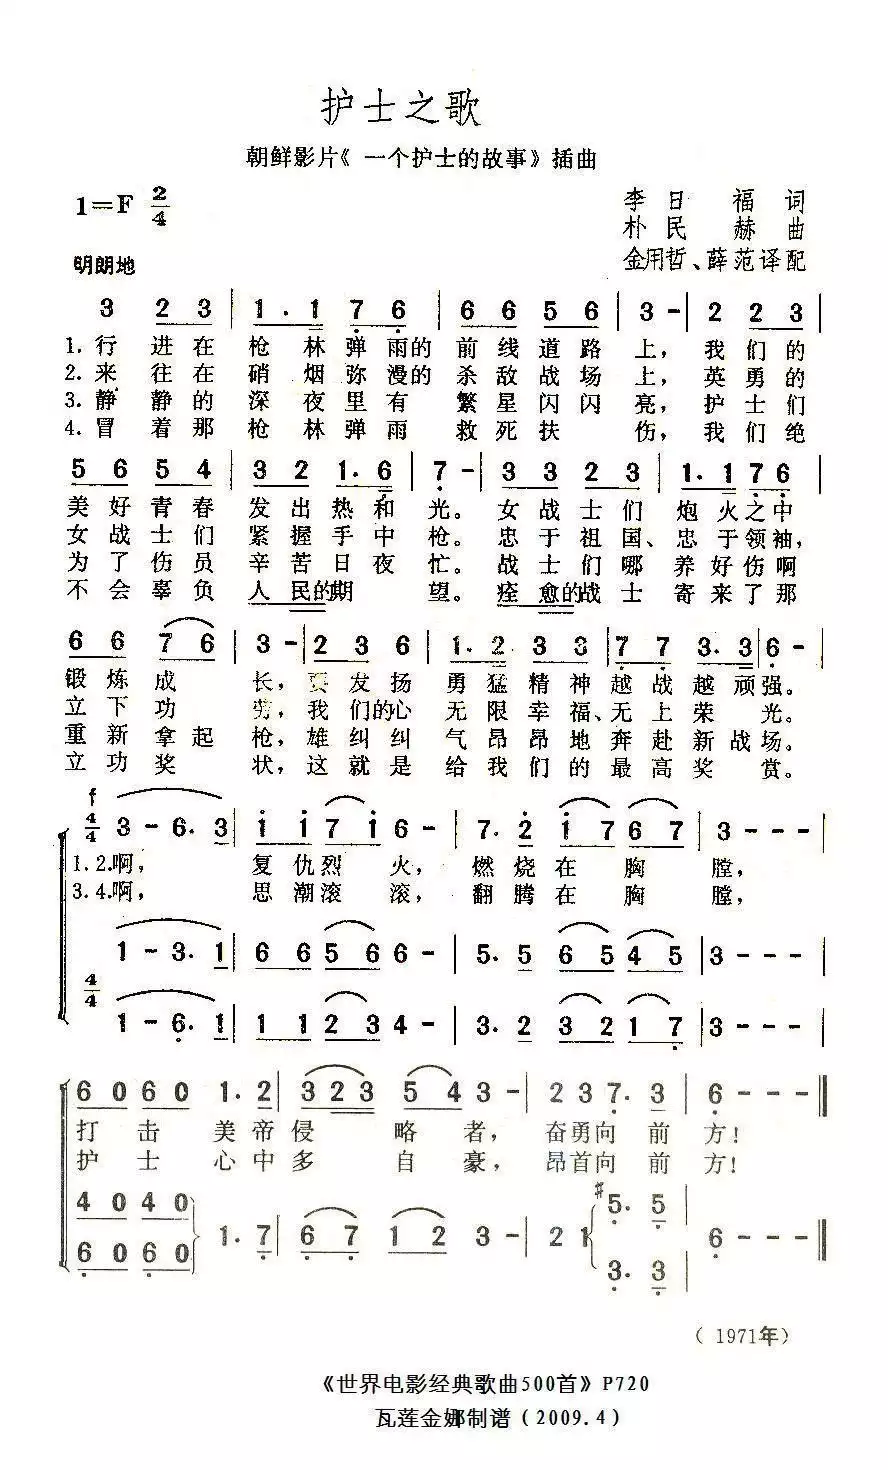 护士之歌
朝鲜影片《一个护士的故事》插曲
1=F 2/4
李日福词
朴民赫曲
金用哲、薛范译配
明朗地
3 2 3 | 1 . 1 7 6 | 6 6 5 6 | 3 - | 2 2 3
1.行进在枪林弹雨的前线道路上，我们的
2.来往在硝烟弥漫的杀敌战场上，英勇的
3.静静的深夜里有繁星闪闪亮，护士们
4.冒着那枪林弹雨救死扶伤，我们绝
5 6 5 4 | 3 2 1. 6 | 7 - | 3 3 2 3 | 1. 1 7 6
美好青春发出热和光。女战士们炮火之中
女战士们紧握手中枪。忠于祖国、忠于领袖，
为了伤员辛苦日夜忙。战士们哪养好伤啊
不会辜负人民的期望。痊愈的战士寄来了那
6 6 7 6 | 3 - | 2 3 6 | 1. 2 3 3 | 7 7 3. 3 | 6 -
锻炼成长，要发扬勇猛精神越战越顽强。
立下功劳，我们的心无限幸福、无上荣光。
重新拿起枪，雄纠纠气昂昂地奔赴新战场。
立功奖状，这就是给我们的最高奖赏。
f
4/4 3 - 6. 3 | i i 7 i 6 - | 7. 2 i 7 6 7 | 3 - - -
1.2.啊，复仇烈火，燃烧在胸膛，
3.4.啊，思潮滚滚，翻腾在胸膛，
1 - 3. 1 | 6 6 5 6 6 - | 5. 5 6 5 4 5 | 3 - - -
4/4 1 - 6. 1 | 1 1 2 3 4 - | 3. 2 3 2 1 7 | 3 - - -
6 0 6 0 1. 2 | 3 2 3 5 4 3 - | 2 3 7. 3 | 6 - - -
打击美帝侵略者，奋勇向前方！
护士心中多自豪，昂首向前方！
4 0 4 0
#5. 5
1. 7 | 6 7 1 2 3 - | 2 1
6 - - -
6 0 6 0
3. 3
（1971年）
《世界电影经典歌曲500首》P720
瓦莲金娜制谱（2009.4）